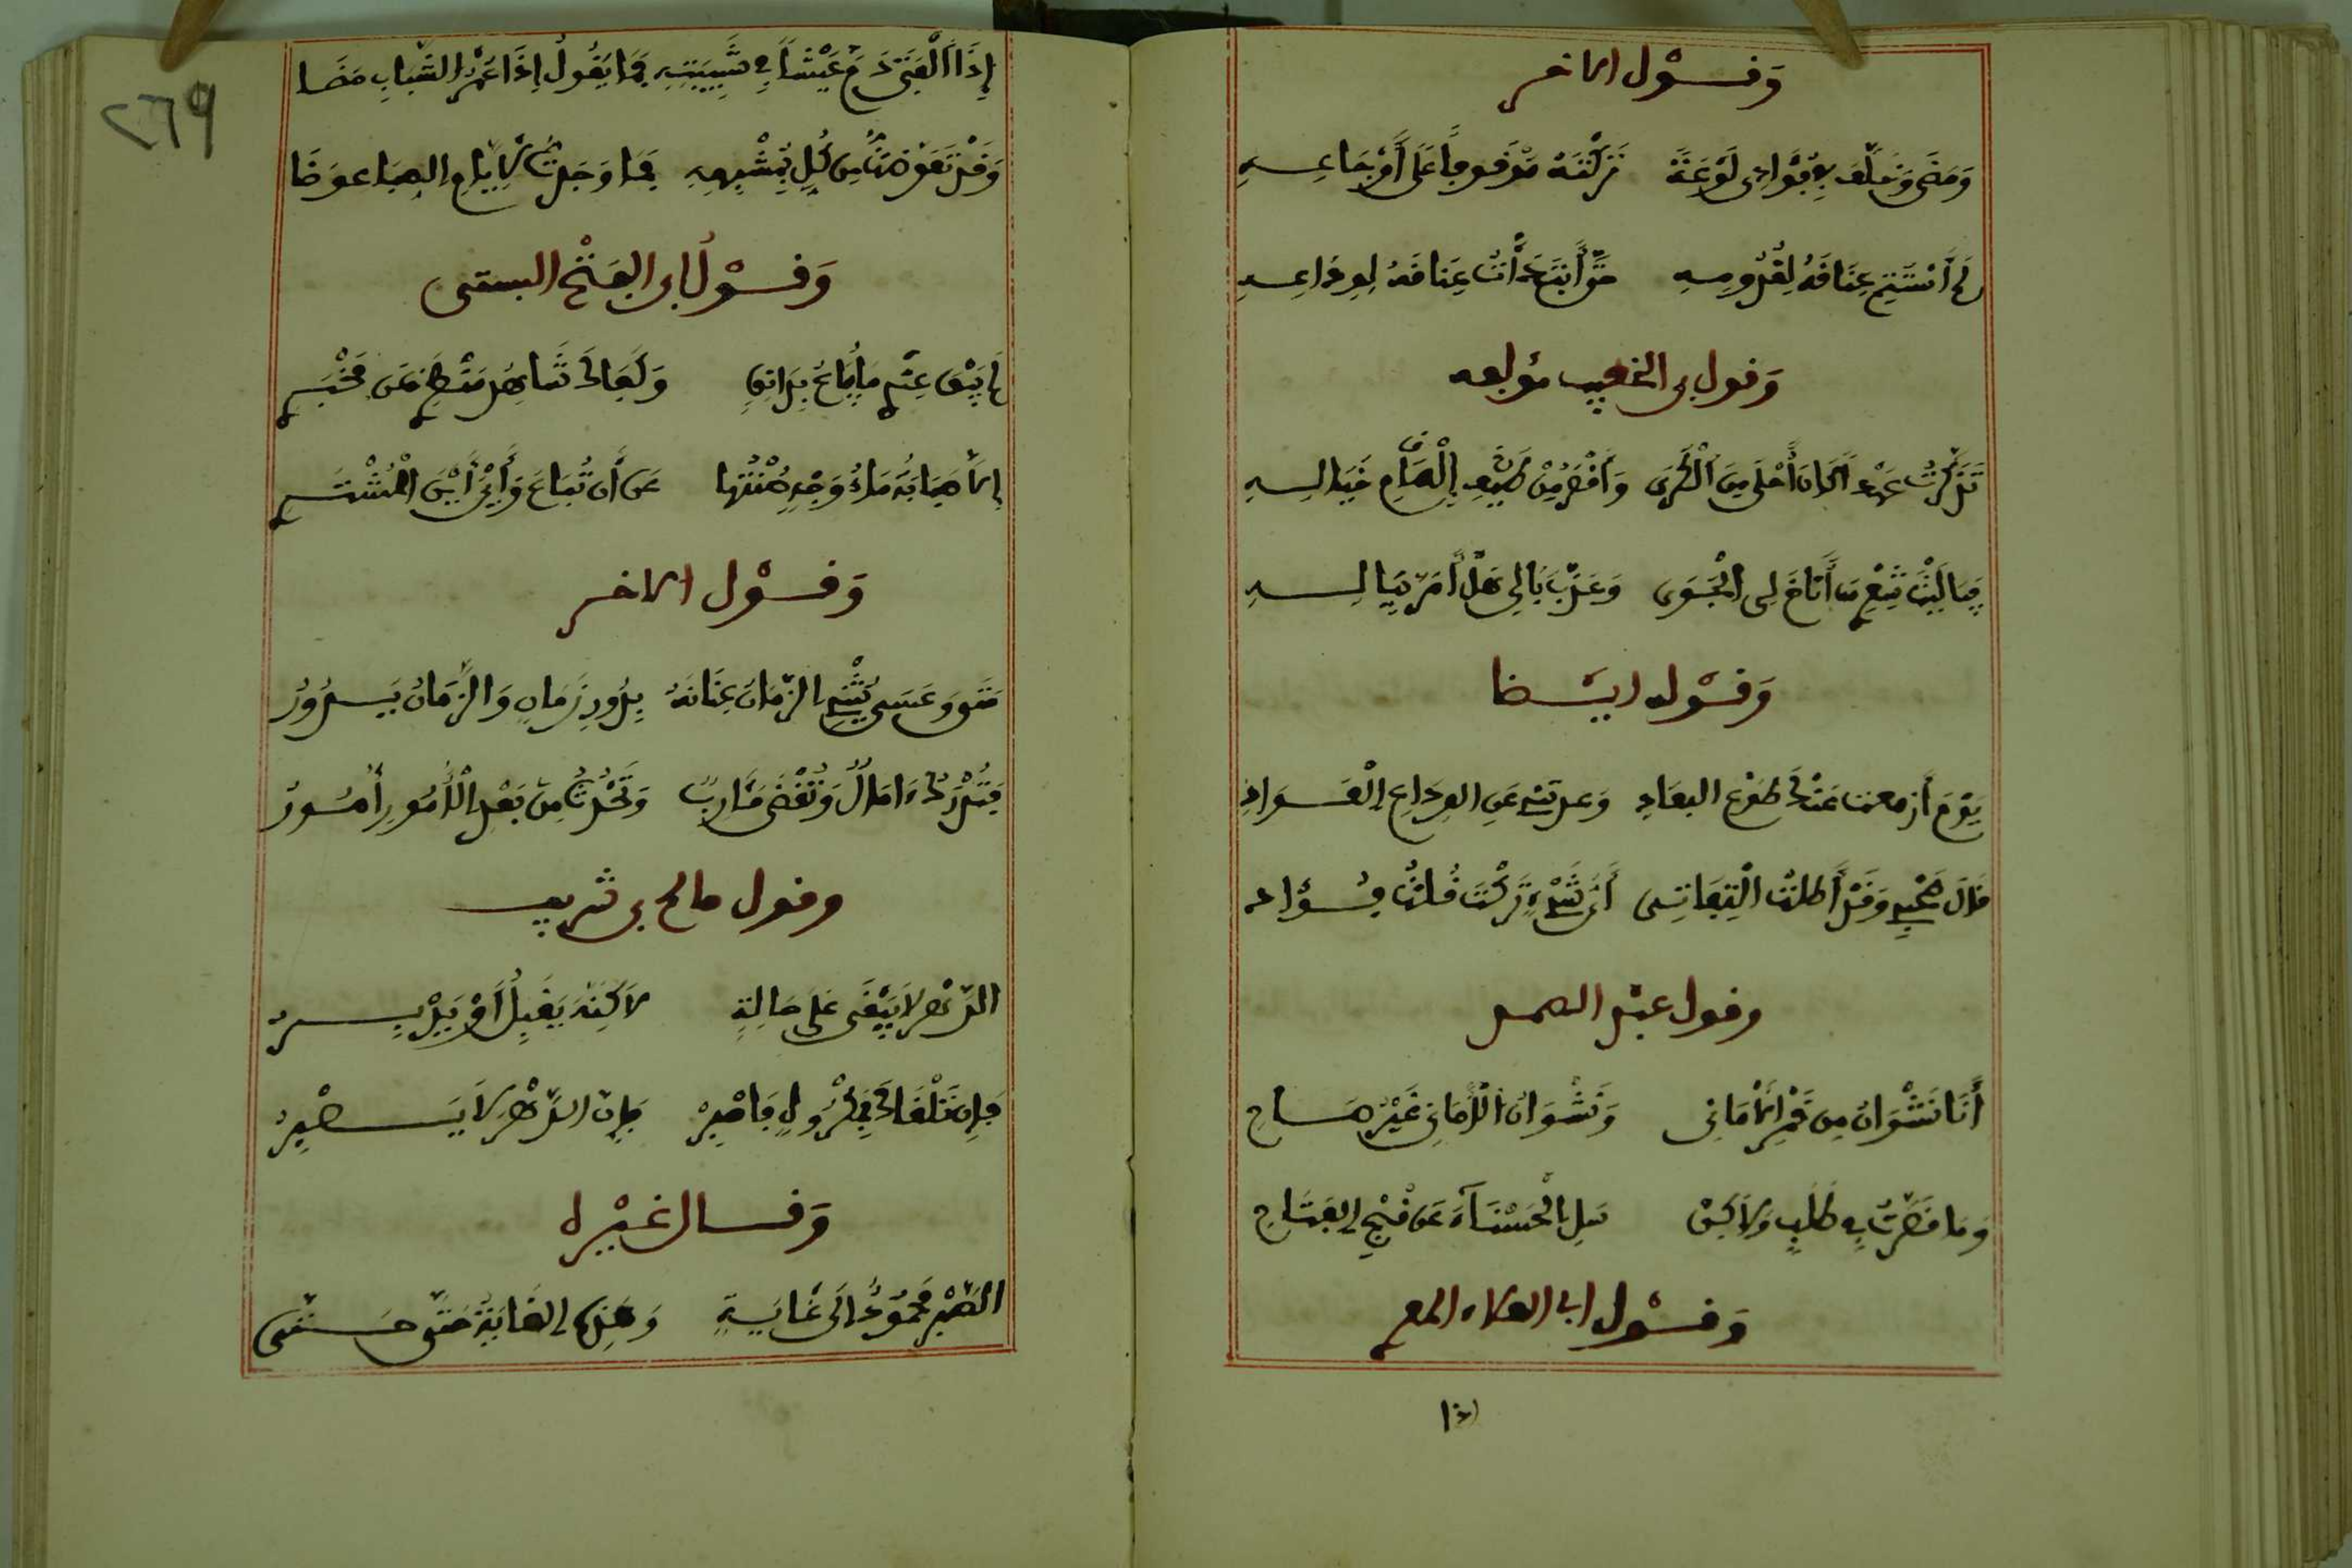 وقول الاخر
ومضى وخلف بفؤادى لوعة تركته موقوفا على أوجاعه
لم أستتم عناقه لقدومه حتى أبتدأت عناقه لوداعه
وقول بن الخطيب مؤلفه
تذكرت عهدا كان أحلى من الكرى وأقصر من إلمام طيف خياله
فيا ليت شعرى ما أتاح لى الجوى وعذب بالى هل أمر بباله
وقوله ايضا
يوم أزمعت عنك طوع البعاد وعدتنى عن الوداع العواد
قال صحبى وقد أطلت التفاتى أى شىء تركت قلت فؤاد
وقول عبد الصمد
أنا نشوان من خمر الأمانى ونشوان الأمانى غير صاح
وما قصرت فى طلب ولاكن سل الحسناء عن قبح القباح
وقول ابى العلاء المعرى
إذا الفتى ذم عيشا فى شبيبته فما يقول إذا عصر الشباب مضا
وقد تعوضت من كل بمشبهه فما وجدت لأيام الصبا عوضا
وقول ابى الفتح البستى
لم يبق عندى ما يباع بدانق وكفاك شاهد منظرى عن مخبرى
إلا صبابة ماء وجه صنتها عن أن تباع وأين أين المشترى
وقول الاخر
متى وعسى يثنى الزمان عنانه بدور زمان والزمان يدور
فتدرك ءامال وتقضى مئارب وتحدث من بعد الأمور أمور
وقول صالح بن شريف
الدهر لا يبقى على حالة لاكنه يقبل أو يدبر
فإن تلقاك بمكروه فاصبر فإن الدهر لا يصبر
وقال غيره
الصبر محمود الى غاية وهذه الغاية حتى متى